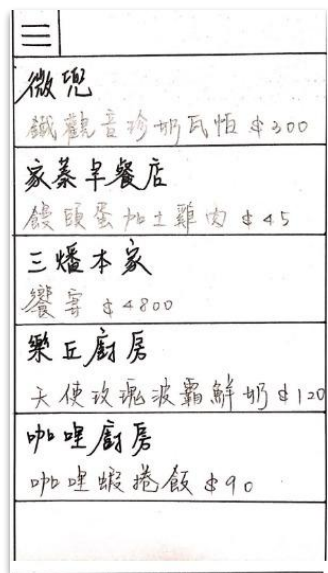 微兜
鐵觀音珍奶瓦恒 $300
家蓁早餐店
饅頭蛋加土雞肉 $45
三燔本家
饗宴 $4800
樂丘廚房
天使玫瑰波霸鮮奶 $120
咖哩廚房
咖哩蝦捲飯 $90